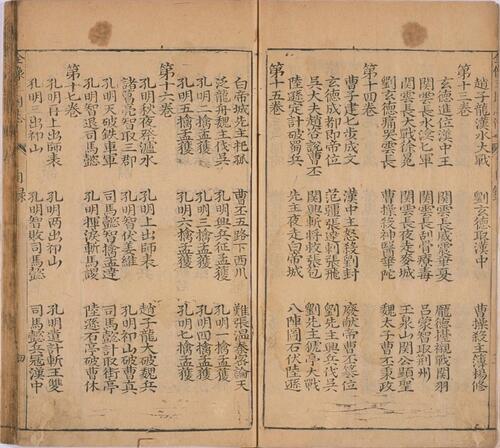 趙子龍漢水大戰 劉玄德智取漢中 曹操殺主簿楊修
第十三卷
玄德進位漢中王 關雲長威震華夏 龐德擡櫬戰關羽
關雲長水淹七軍 關雲長刮骨療毒 呂蒙智取荊州
關雲長大戰徐晃 關雲長夜走麥城 玉泉山關公顯聖
劉玄德痛哭雲長 曹操殺神醫華陀 魏太子曹丕秉政
第十四卷
曹子建七步成文 漢中王怒殺劉封 廢献帝曹丕篡位
玄德成都即帝位 范疆張達刺張飛 劉先主興兵伐吳
吳大夫趙咨說曹丕 關興斬將救張包 劉先主猇亭大戰
陸遜定計破蜀兵 先主夜走白帝城 八陣圖石伏陸遜
第十五卷
白帝城先主托孤 曹丕五路下西川 難張溫秦宓論天
泛龍舟魏主伐吳 孔明興兵征孟獲 孔明一擒孟獲
孔明二擒孟獲 孔明三擒孟獲 孔明四擒孟獲
孔明五擒孟獲 孔明六擒孟獲 孔明七擒孟獲
第十六卷
孔明秋夜祭瀘水 孔明上出師表 趙子龍大破魏兵
諸葛亮智取三郡 孔明智伏姜維 孔明祁山破曹真
孔明大破鐵車軍 司馬懿智擒孟達 司馬懿計取街亭
孔明智退司馬懿 孔明揮淚斬馬謖 陸遜石亭破曹休
第十七卷
孔明再上出師表 孔明兩出祁山 孔明遺計斬王雙
孔明三出祁山 孔明智敗司馬懿 司馬懿兵寇漢中
全像 國志 目錄 四